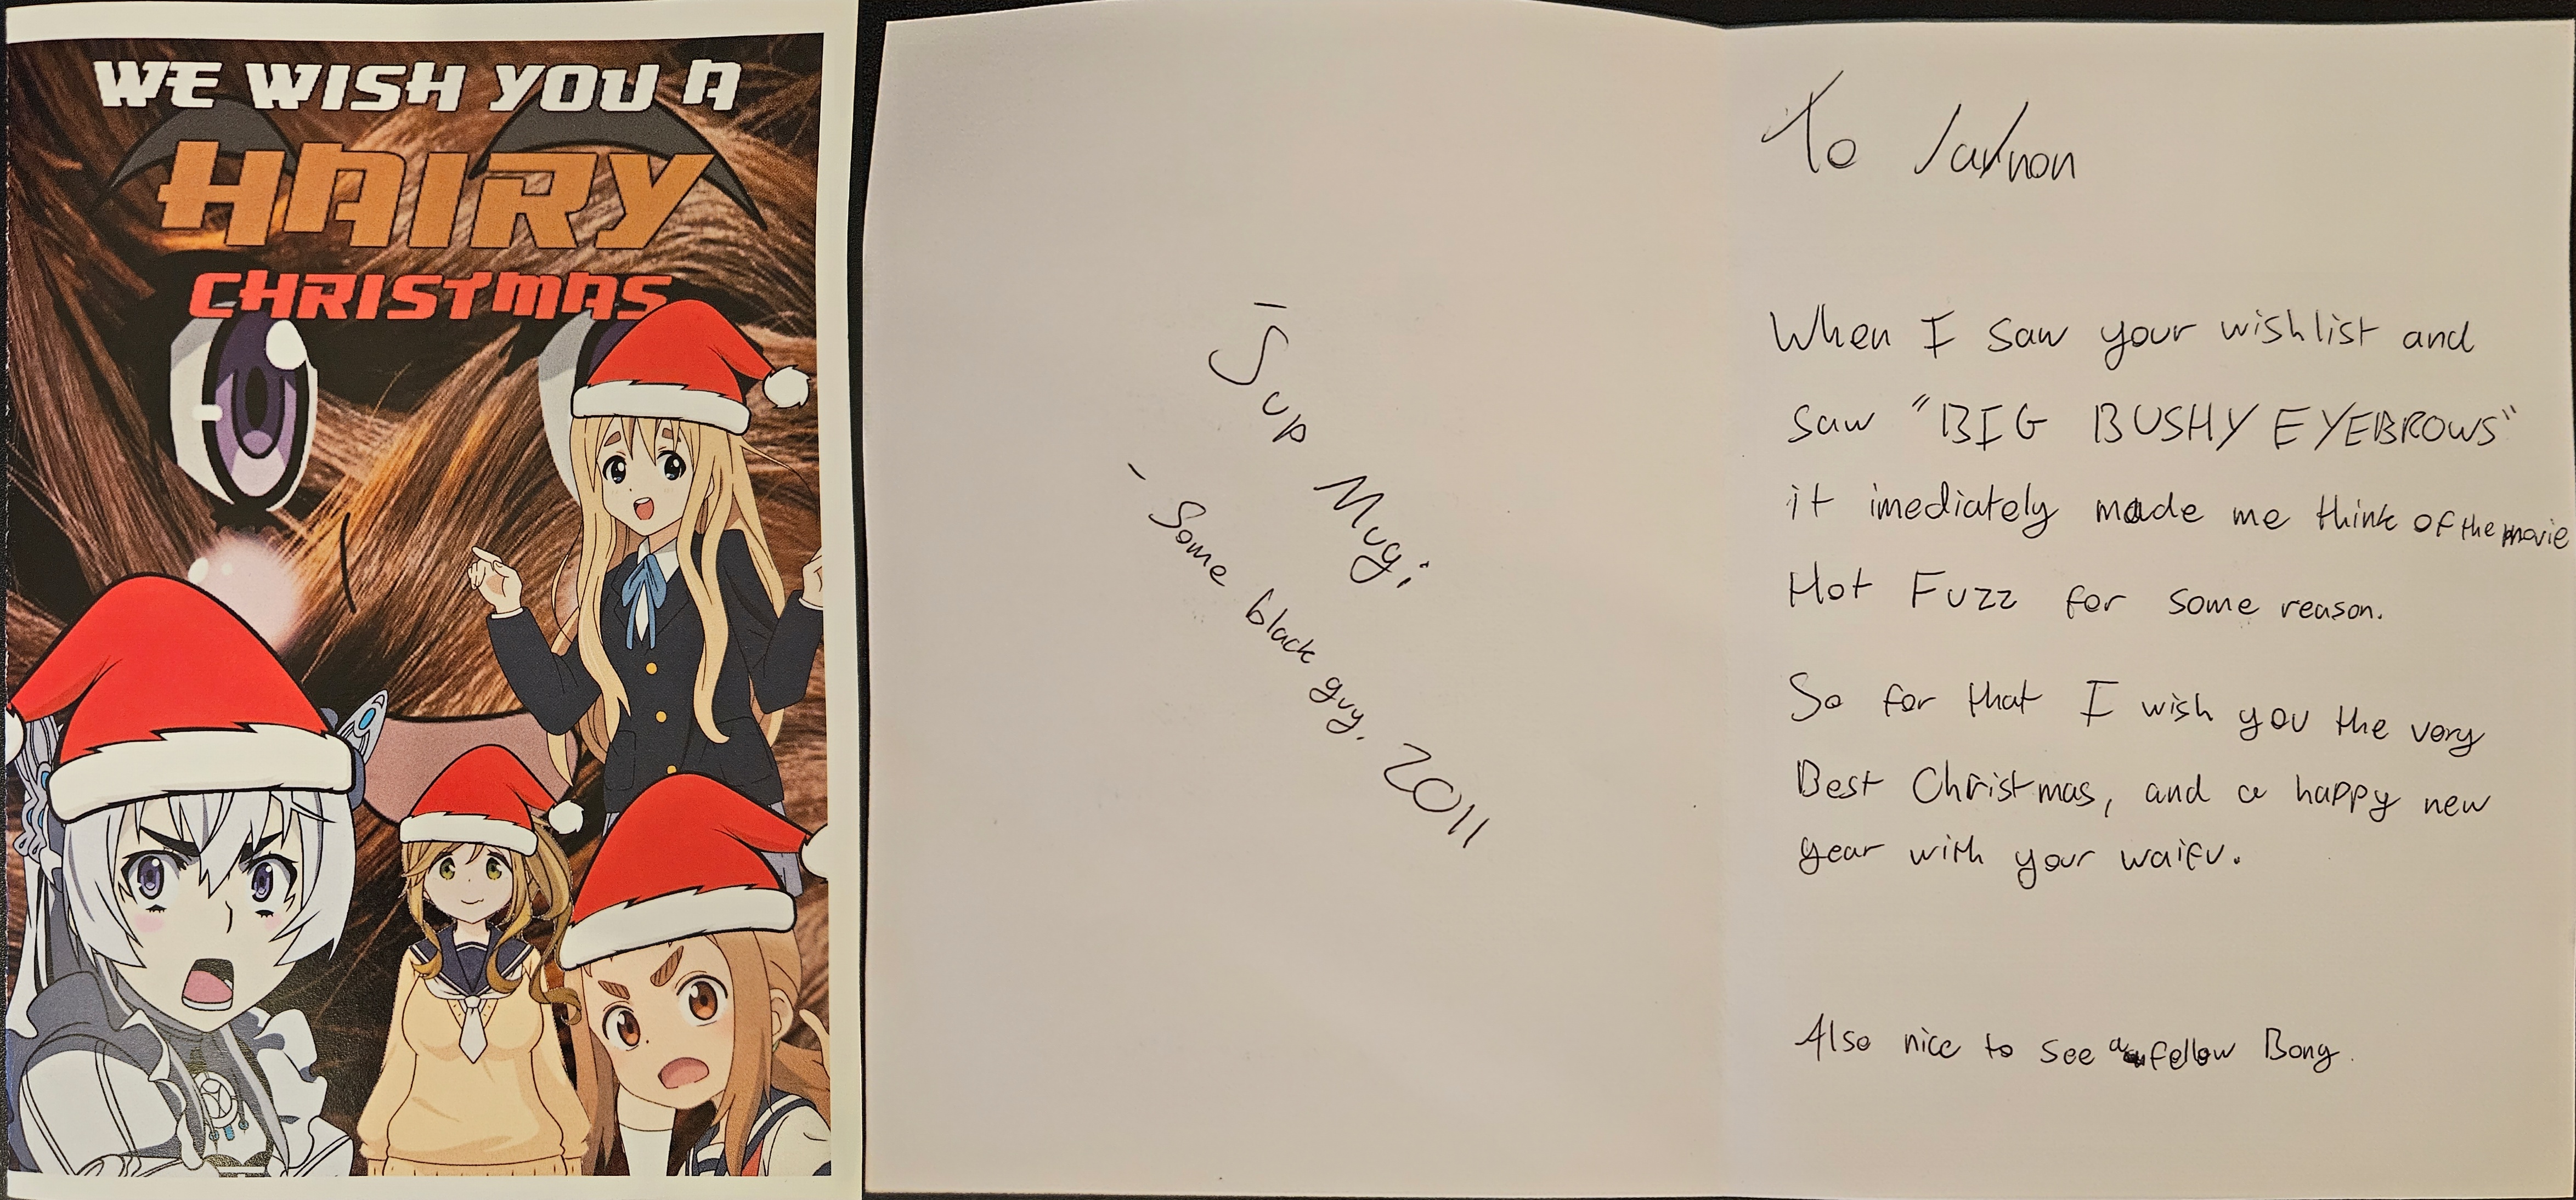 WE WISH YOU A
HAIRY
CHRISTMAS
- Sup Mugi
- Some black guy. 2011
To
When I saw your wishlist and
saw "BIG BUSHY EYEBROWS"
it imediately made me think of the movie
Hot Fuzz for some reason.
So for that I wish you the very
Best Christmas, and a happy new
year with your waifu.
Also nice to see a fellow Bong.